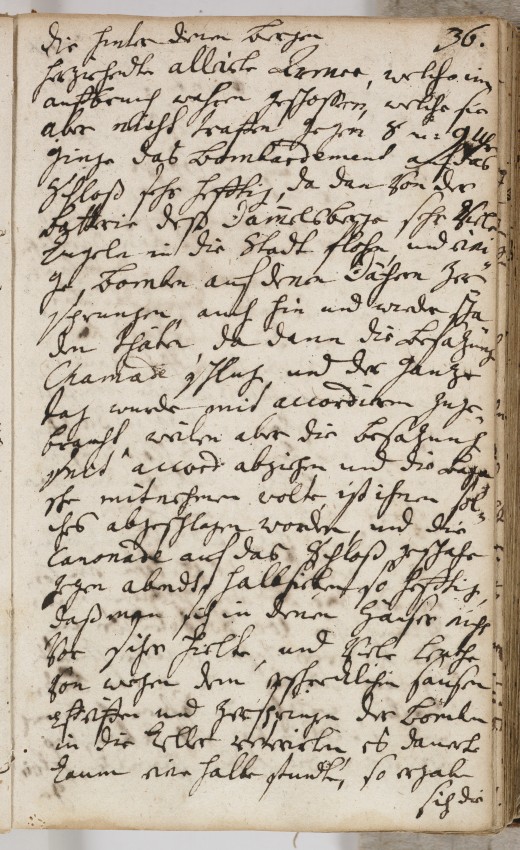 36.
die hinter denen bergen
herziehendte alliirte Armee, welche im
aufbruch wahren geschossen, welche sie
aber nicht traffen gegen 8 u: 9 Uhr
ginge das Bombardement auf das
Schloß sehr hefftig, da dan von der
Batterie deß Dammelsbergs sehr viele
Kugeln in die Stadt flohen, und eini-
ge Bomben auf denen Dächern zer-
sprungen, auch hin und wieder scha
den thäten, da dann die Besatzung
Chamade schlug, und der gantze
tag wurde mit accordiren zuge-
bracht, weilen aber die besatzung
mit accord abziehen und die
mitnehmen wolte, ist ihnen sol-
ches abgeschlagen worden, und die
Canonade auf das Schloß geschahe
gegen abendts halbsieben so hefftig,
daß man sich in denen Häuser nicht
vor sicher hielte, und viele leuthe
von wegen dem erschrecklichen sausen
pfeiffen und zerspringen der Bomben
in die Keller es dauerte
kaum eine halbe stundt, so ergabe
sich die